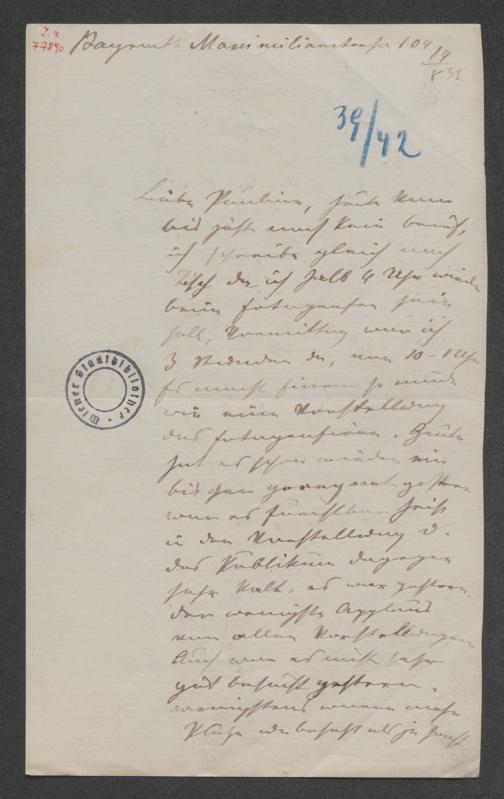 J. N.
77890
Bayreuth Maximilianstrasse 104
14
8
39/42
Liebe Pauline, heute kam
bis jetzt noch kein Brief,
ich schreibe gleich nach
Tisch da ich halb 4 Uhr wieder
beim Fotografen sein
soll, Vormittag war ich
3 Stunden da, von 10 - 1 Uhr
Es macht einem so müde
wie eine Vorstellung
das fotografieren. Heute
hat es schon wieder ein
bischen geregnet gestern
war es furchtbar heiß
in der Vorstellung d.
das Publikum dagegen
sehr kalt. es war gestern
der wenigste Applaus
von allen Vorstellungen
Auch war es nicht sehr
gut besucht gestern.
wenigstens waren mehr
Plätze unbesetzt als je sonst
Wiener Stadtbibliothek